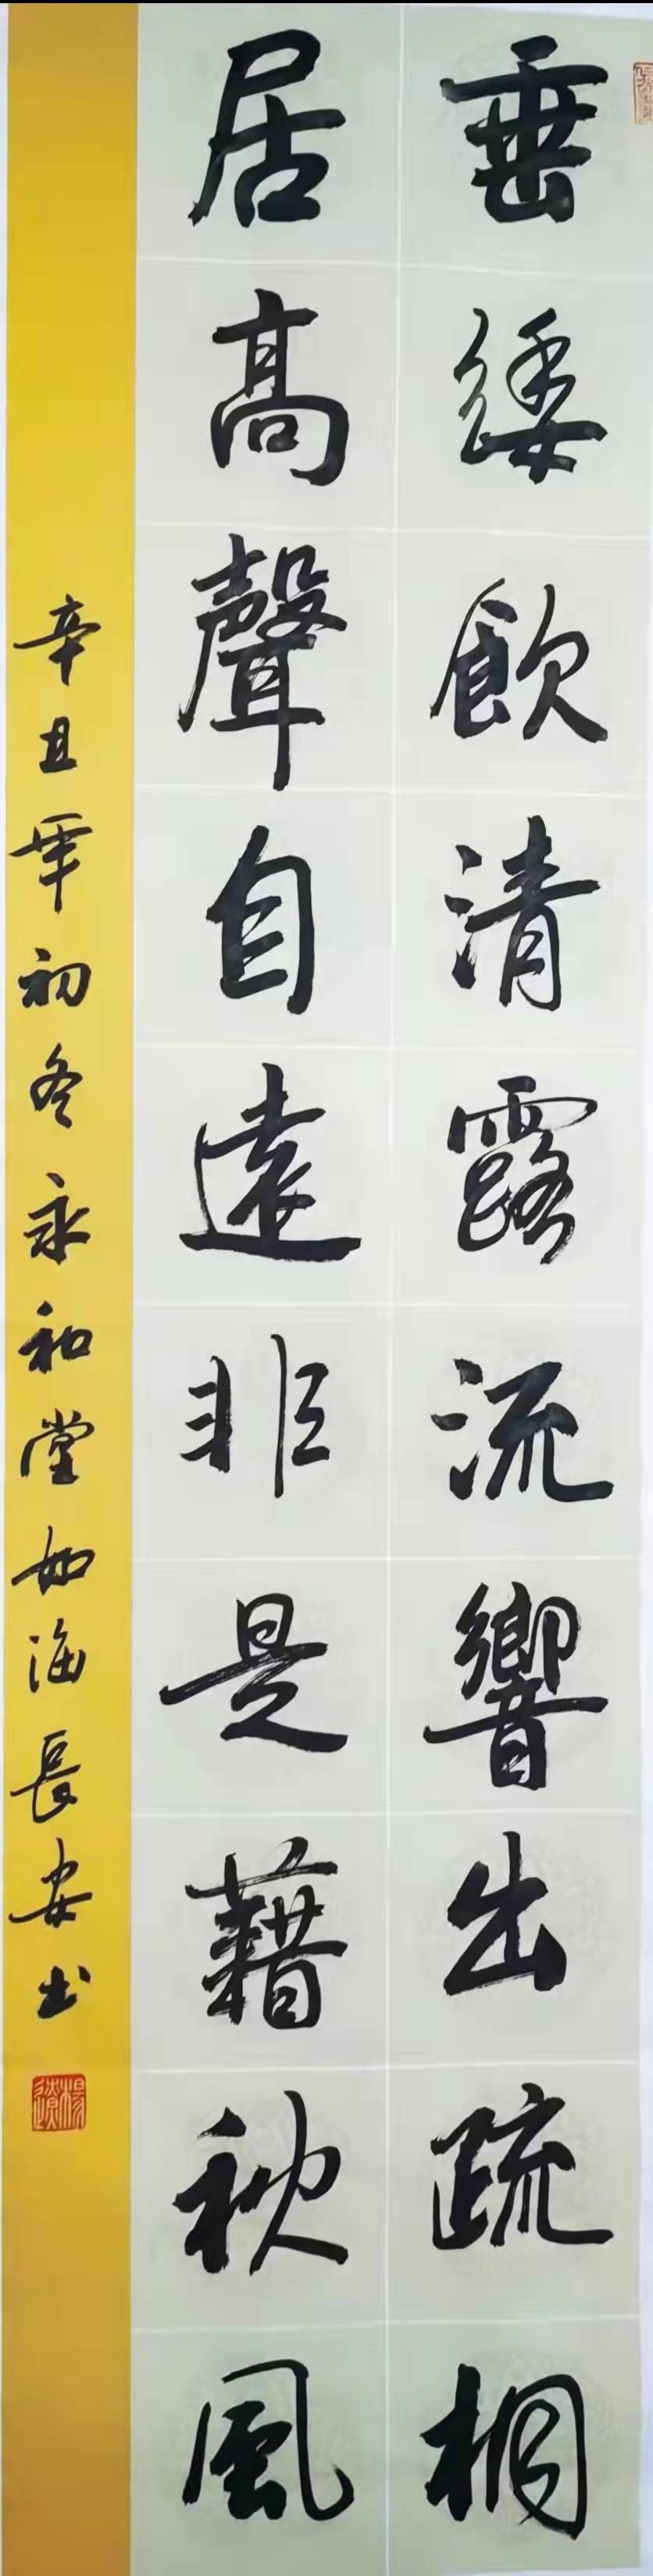 垂緌飲清露流響出疏桐
居高聲自遠非是藉秋風
辛丑年初冬永和堂如海長安书